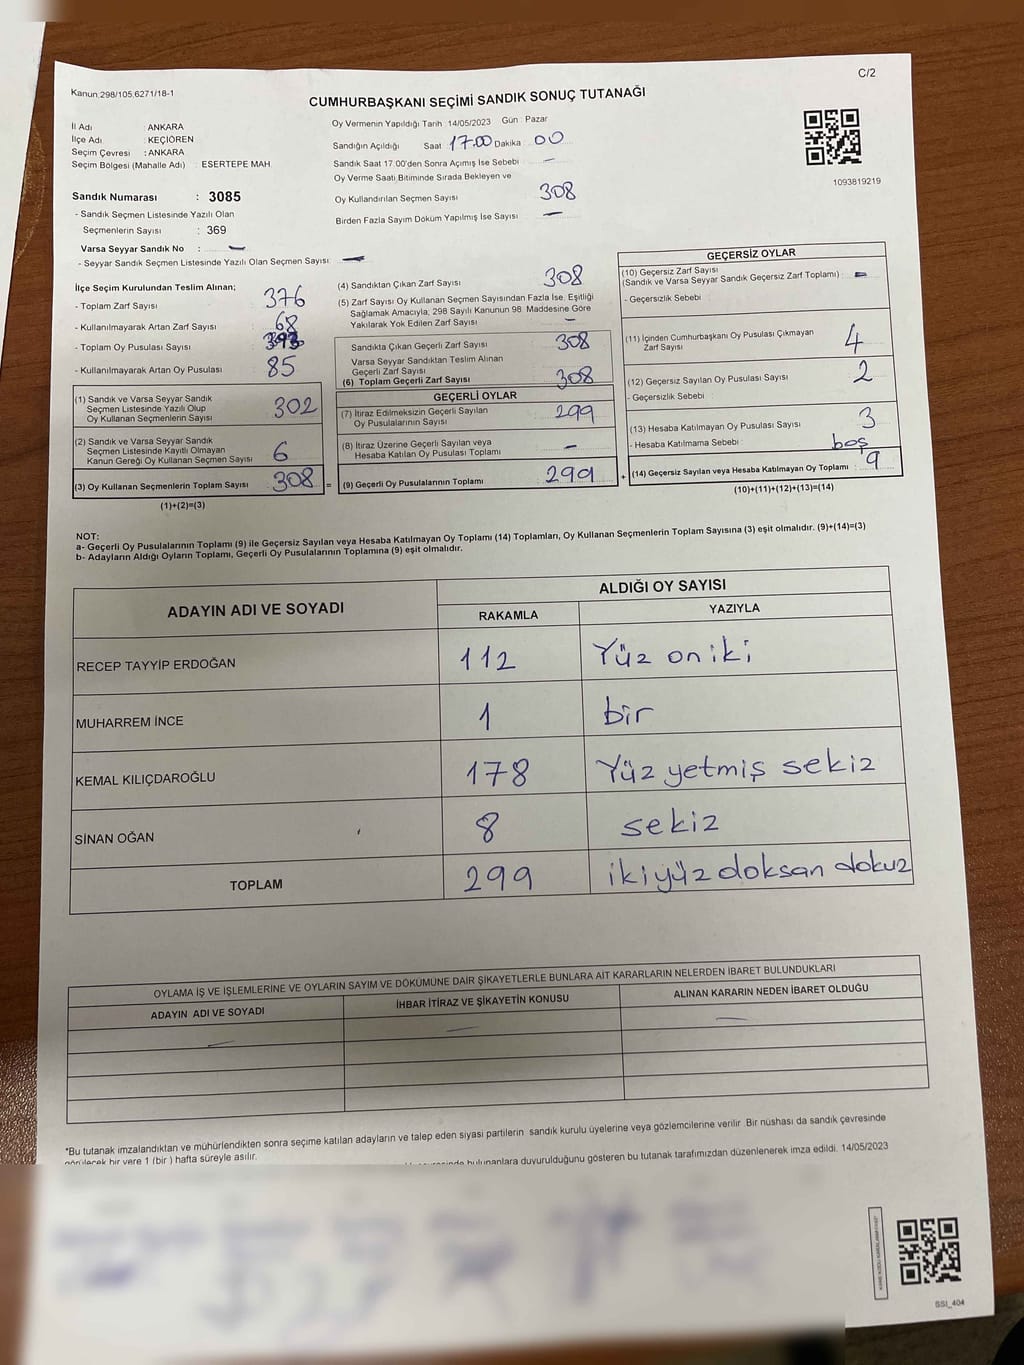 C/2
Kanun 298/105,6271/18-1
CUMHURBAŞKANI SEÇİMİ SANDIK SONUÇ TUTANAĞI
İl Adı : ANKARA
İlçe Adı : KEÇİÖREN
Seçim Çevresi : ANKARA
Seçim Bölgesi (Mahalle Adı) : ESERTEPE MAH
Sandık Numarası : 3085
- Sandık Seçmen Listesinde Yazılı Olan
Seçmenlerin Sayısı : 369
Varsa Seyyar Sandık No : —
- Seyyar Sandık Seçmen Listesinde Yazılı Olan Seçmen Sayısı —
Oy Vermenin Yapıldığı Tarih :14/05/2023 Gün : Pazar
Sandığın Açıldığı Saat 17.00 Dakika 00
Sandık Saat 17.00'den Sonra Açımış İse Sebebi —
Oy Verme Saati Bitiminde Sırada Bekleyen ve
Oy Kullandırılan Seçmen Sayısı 308
Birden Fazla Sayım Döküm Yapılmış İse Sayısı —
1093819219
İlçe Seçim Kurulundan Teslim Alınan;
- Toplam Zarf Sayısı 376
- Kullanılmayarak Artan Zarf Sayısı 68
- Toplam Oy Pusulası Sayısı 393
- Kullanılmayarak Artan Oy Pusulası 85
(1) Sandık ve Varsa Seyyar Sandık
Seçmen Listesinde Yazılı Olup
Oy Kullanan Seçmenlerin Sayısı 302
(2) Sandık ve Varsa Seyyar Sandık
Seçmen Listesinde Kayıtlı Olmayan
Kanun Gereği Oy Kullanan Seçmen Sayısı 6
(3) Oy Kullanan Seçmenlerin Toplam Sayısı 308 =
(1)+(2)=(3)
(4) Sandıktan Çıkan Zarf Sayısı 308
(5) Zarf Sayısı Oy Kullanan Seçmen Sayısından Fazla İse, Eşitliği
Sağlamak Amacıyla; 298 Sayılı Kanunun 98 Maddesine Göre
Yakılarak Yok Edilen Zarf Sayısı —
Sandıkta Çıkan Geçerli Zarf Sayısı 308
Varsa Seyyar Sandıktan Teslim Alınan
Geçerli Zarf Sayısı
(6) Toplam Geçerli Zarf Sayısı 308
GEÇERLİ OYLAR
(7) İtiraz Edilmeksizin Geçerli Sayılan
Oy Pusulalarının Sayısı 299
(8) İtiraz Üzerine Geçerli Sayılan veya
Hesaba Katılan Oy Pusulası Toplamı —
(9) Geçerli Oy Pusulalarının Toplamı 299 +
GEÇERSİZ OYLAR
(10) Geçersiz Zarf Sayısı
(Sandık ve Varsa Seyyar Sandık Geçersiz Zarf Toplamı) : —
- Geçersizlik Sebebi :
(11) İçinden Cumhurbaşkanı Oy Pusulası Çıkmayan
Zarf Sayısı 4
(12) Geçersiz Sayılan Oy Pusulası Sayısı 2
- Geçersizlik Sebebi :
(13) Hesaba Katılmayan Oy Pusulası Sayısı 3
- Hesaba Katılmama Sebebi : boş
(14) Geçersiz Sayılan veya Hesaba Katılmayan Oy Toplamı : 9
(10)+(11)+(12)+(13)=(14)
NOT:
a- Geçerli Oy Pusulalarının Toplamı (9) ile Geçersiz Sayılan veya Hesaba Katılmayan Oy Toplamı (14) Toplamları, Oy Kullanan Seçmenlerin Toplam Sayısına (3) eşit olmalıdır. (9)+(14)=(3)
b- Adayların Aldığı Oyların Toplamı, Geçerli Oy Pusulalarının Toplamına (9) eşit olmalıdır.
ADAYIN ADI VE SOYADI ALDIĞI OY SAYISI
RAKAMLA YAZIYLA
RECEP TAYYİP ERDOĞAN 112 Yüz on iki
MUHARREM İNCE 1 bir
KEMAL KILIÇDAROĞLU 178 Yüz yetmiş sekiz
SİNAN OĞAN 8 sekiz
TOPLAM 299 ikiyüz doksan dokuz
OYLAMA İŞ VE İŞLEMLERİNE VE OYLARIN SAYIM VE DÖKÜMÜNE DAİR ŞİKAYETLERLE BUNLARA AİT KARARLARIN NELERDEN İBARET BULUNDUKLARI
ADAYIN ADI VE SOYADI İHBAR İTİRAZ VE ŞİKAYETİN KONUSU ALINAN KARARIN NEDEN İBARET OLDUĞU
— — —
*Bu tutanak imzalandıktan ve mühürlendikten sonra seçime katılan adayların ve talep eden siyasi partilerin sandık kurulu üyelerine veya gözlemcilerine verilir. Bir nüshası da sandık çevresinde
görülecek bir yere 1 (bir) hafta süreyle asılır.
bulunanlara duyurulduğunu gösteren bu tutanak tarafımızdan düzenlenerek imza edildi. 14/05/2023
SSI_404